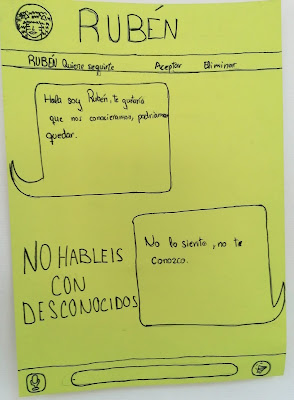 RUBÉN
RUBÉN Quiere seguirte Aceptar Eliminar
Holla soy Rubén, te gustaría
que nos conocieramos, podriamos
quedar.
No lo siento, no te
conozco.
NO HABLEIS
CON
DESCONOCIDOS